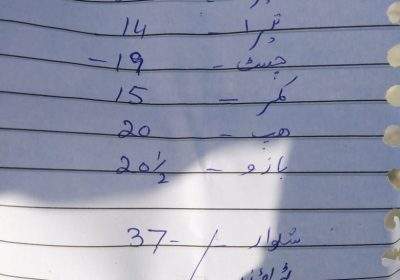 تیرا - 14
چسٹ - 19 -
کمر - 15
ہپ - 20
بازو - 20 1/2
شلوار - / - 37